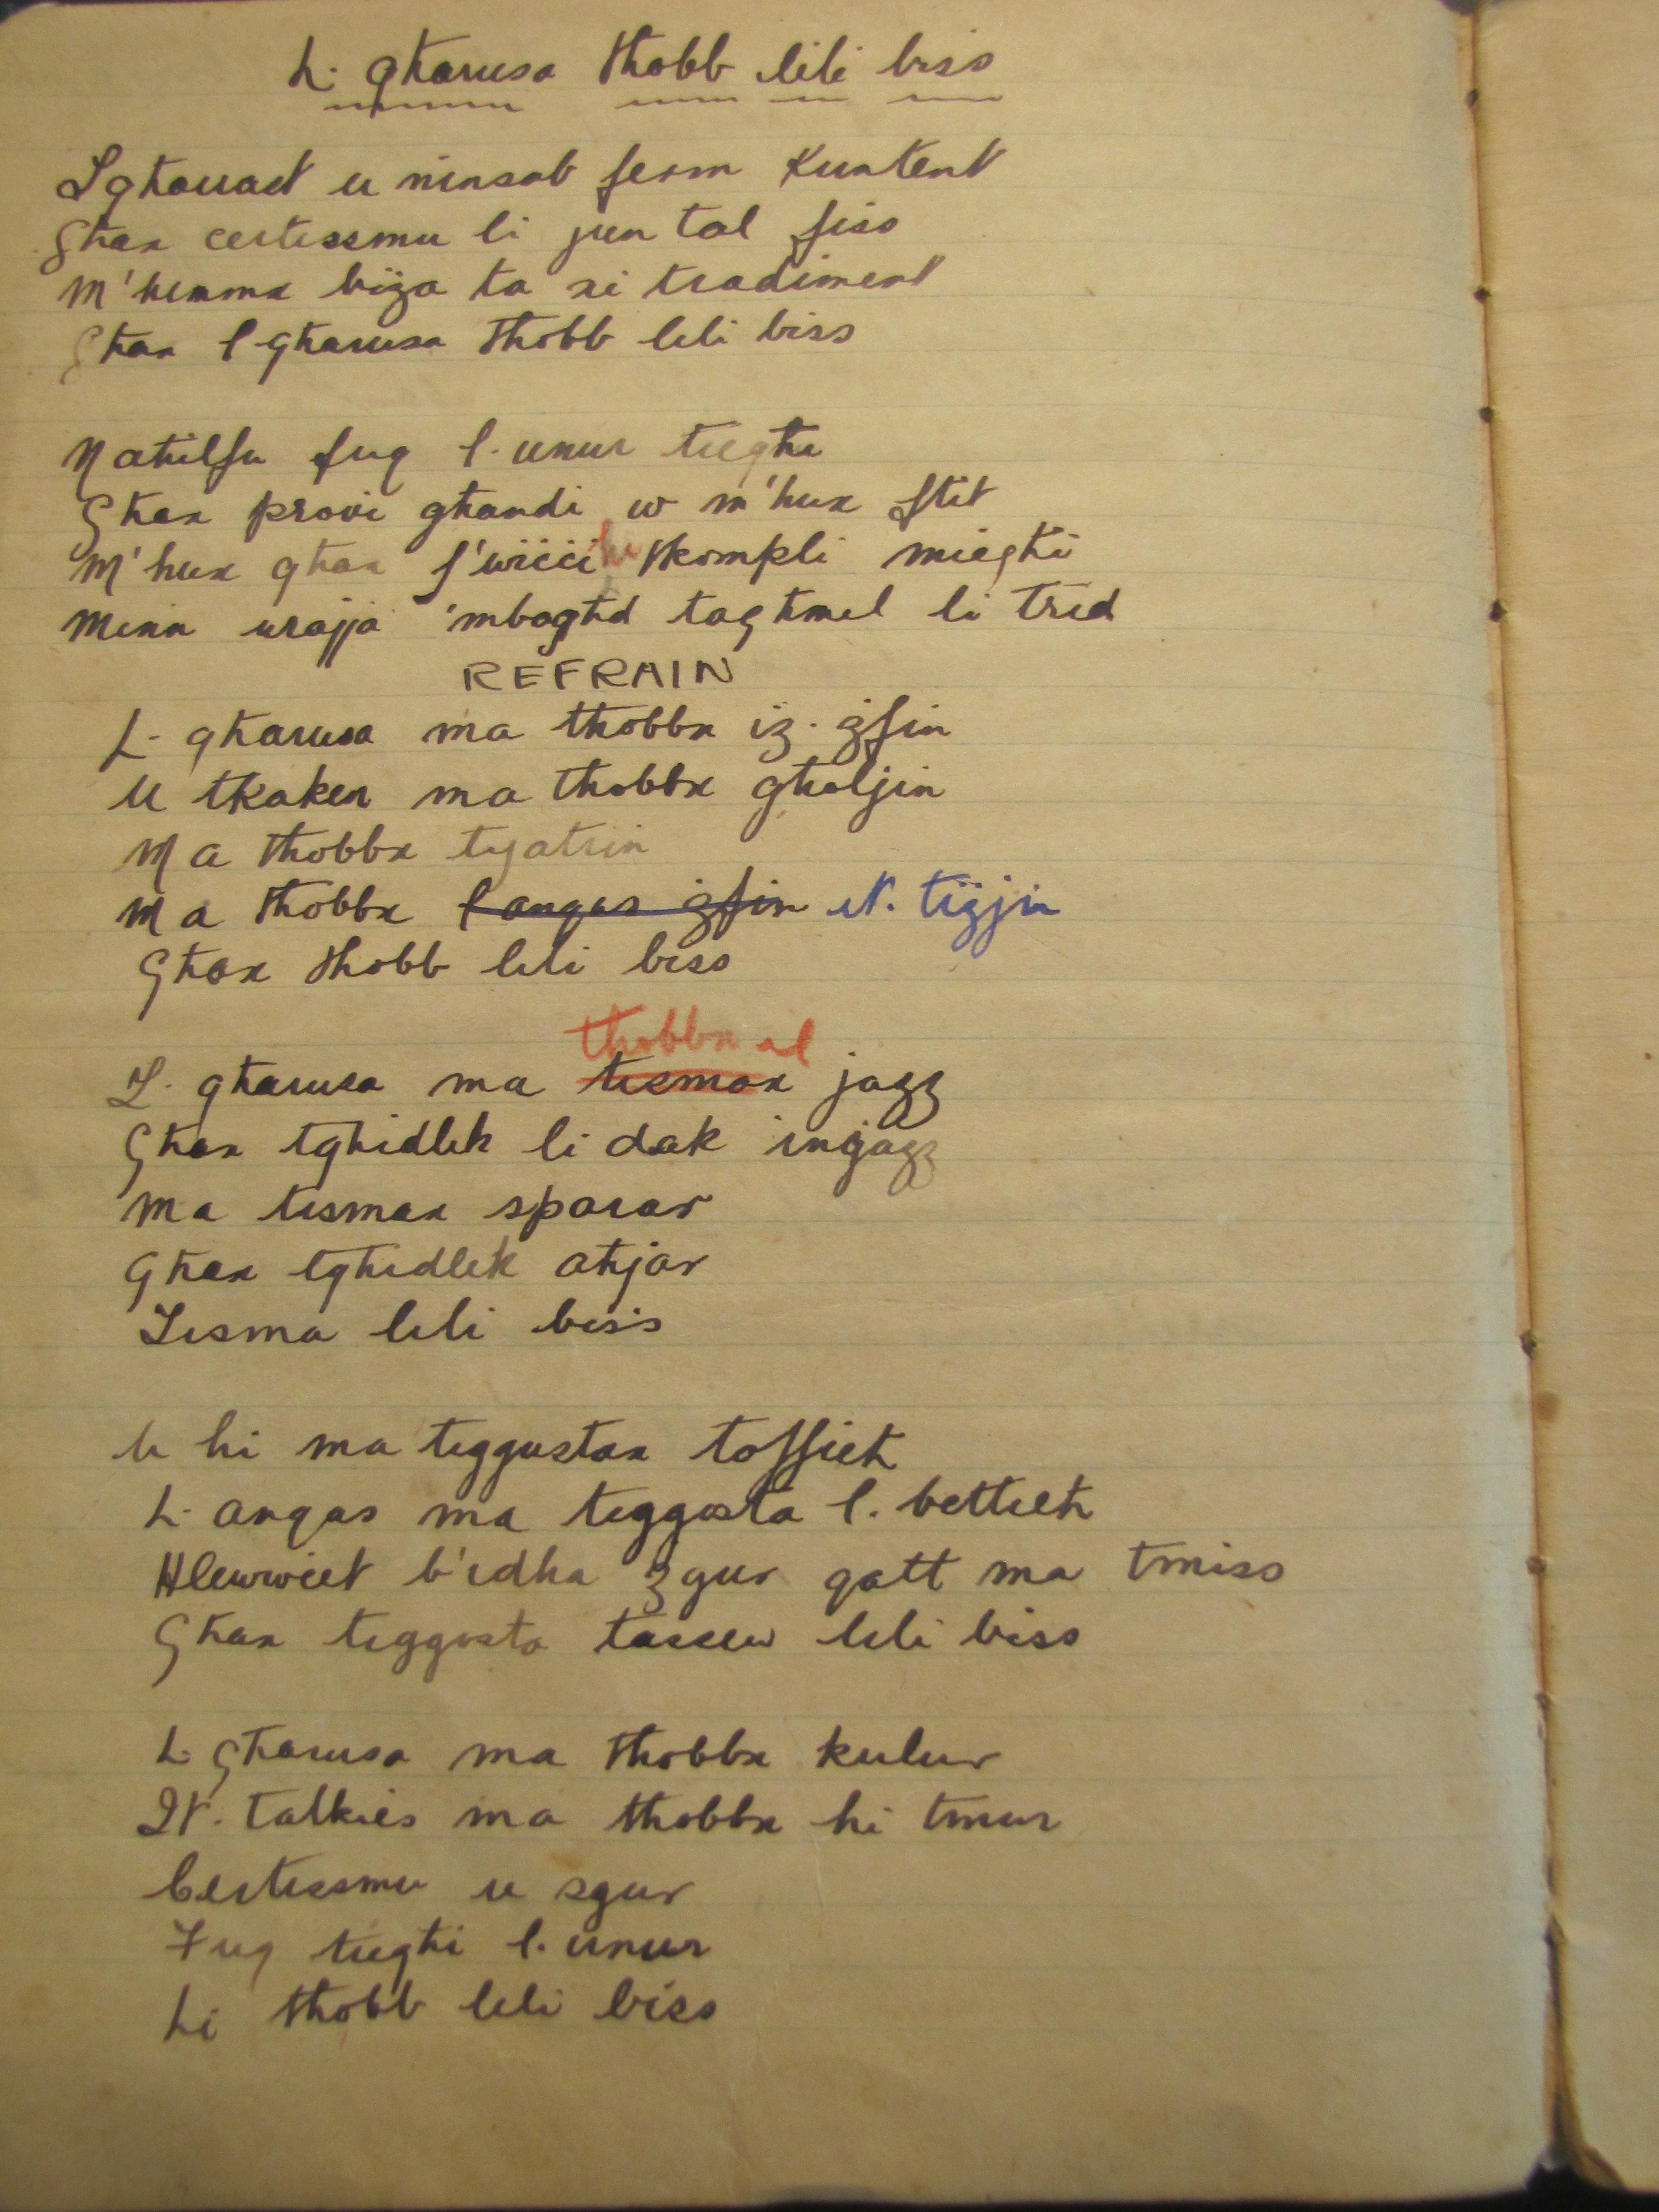 L. għarusa tħobb lili biss
Igħawdt u ninsab ferm kuntent
Għax certissmu li jien tal fiss
M'hemmx biża ta xi tradiment
Għax l-għarusa tħobb lili biss
Naħilfu fuq l. unur tiegħi
Għax provi għandi w m'hux ftit
M'hux għax f'wiċċi hi tkompli miegħi
Minn wrajja 'mbagħd tagħmel li trid
REFRAIN
L- għarusa ma tħobbx iż- żfin
U tkaken ma tħobbx għaljin
Ma tħobbx tyatrin
Ma tħobbx l anqas żfin it. tiżjin
Għax tħobb lili biss
tħobbx il
L. għarusa ma tismax jazz
Għax tgħidlek li dak inġazz
Ma tismax sparar
Għax tgħidlek aħjar
Tisma lili biss
U hi ma tiggustax toffieħ
L- anqas ma tiggosta l. bettieħ
Ħlewwiet b'idha żgur qatt ma tmiss
Għax tiggosta tassew lili biss
L għarusa ma tħobbx kulur
It. talkies ma tħobbx hi tmur
Certissmu u sgur
Fuq tiegħi l. unur
Li tħobb lili biss